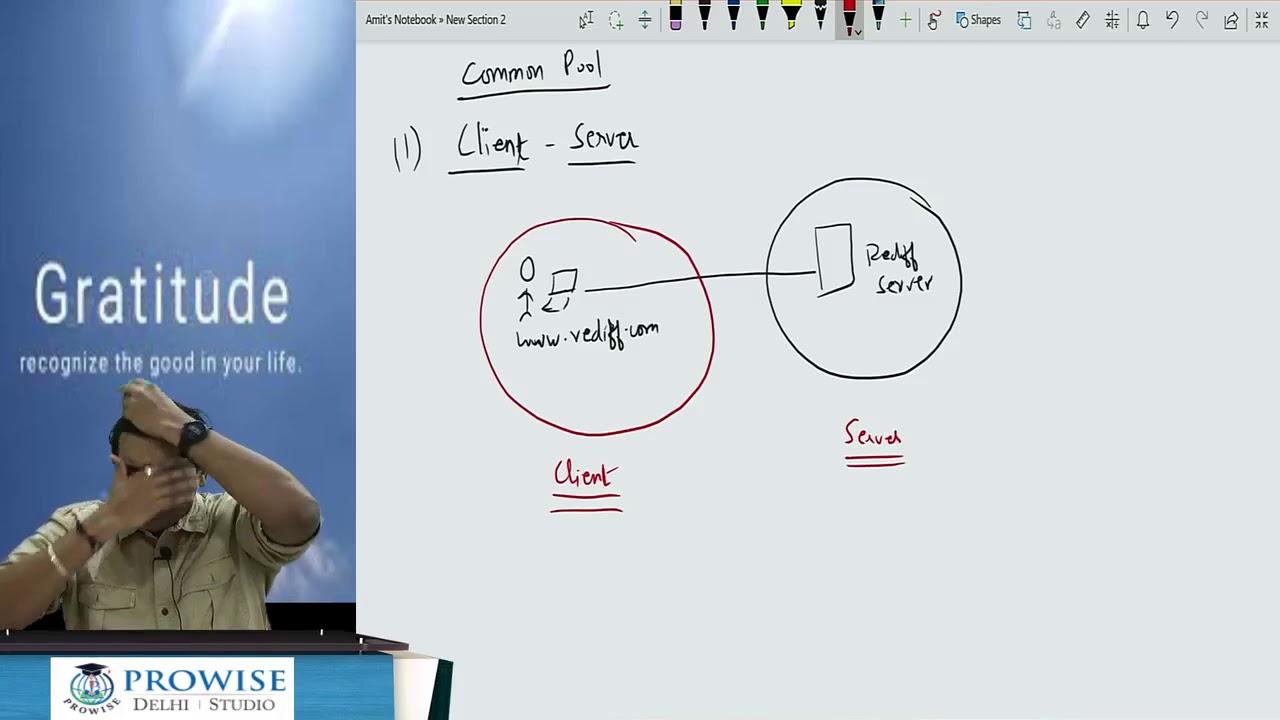 Amit's Notebook » New Section 2
Shapes
Common Pool
(1) Client - Server
Rediff
Server
www.rediff.com
Server
Client
Gratitude
recognize the good in your life.
PROWISE
PROWISE
DELHI | STUDIO